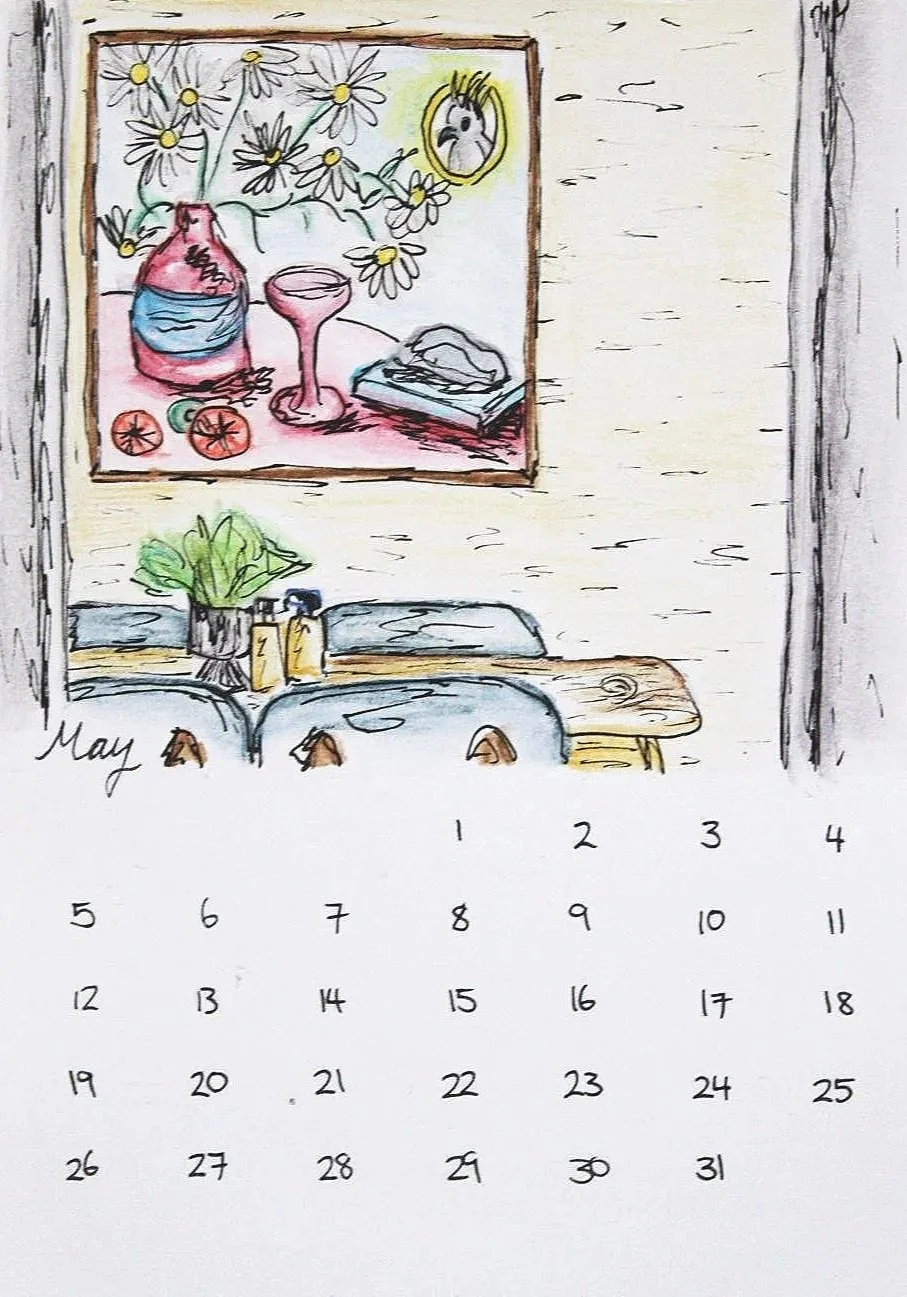 May
1 2 3 4
5 6 7 8 9 10 11
12 13 14 15 16 17 18
19 20 21 22 23 24 25
26 27 28 29 30 31